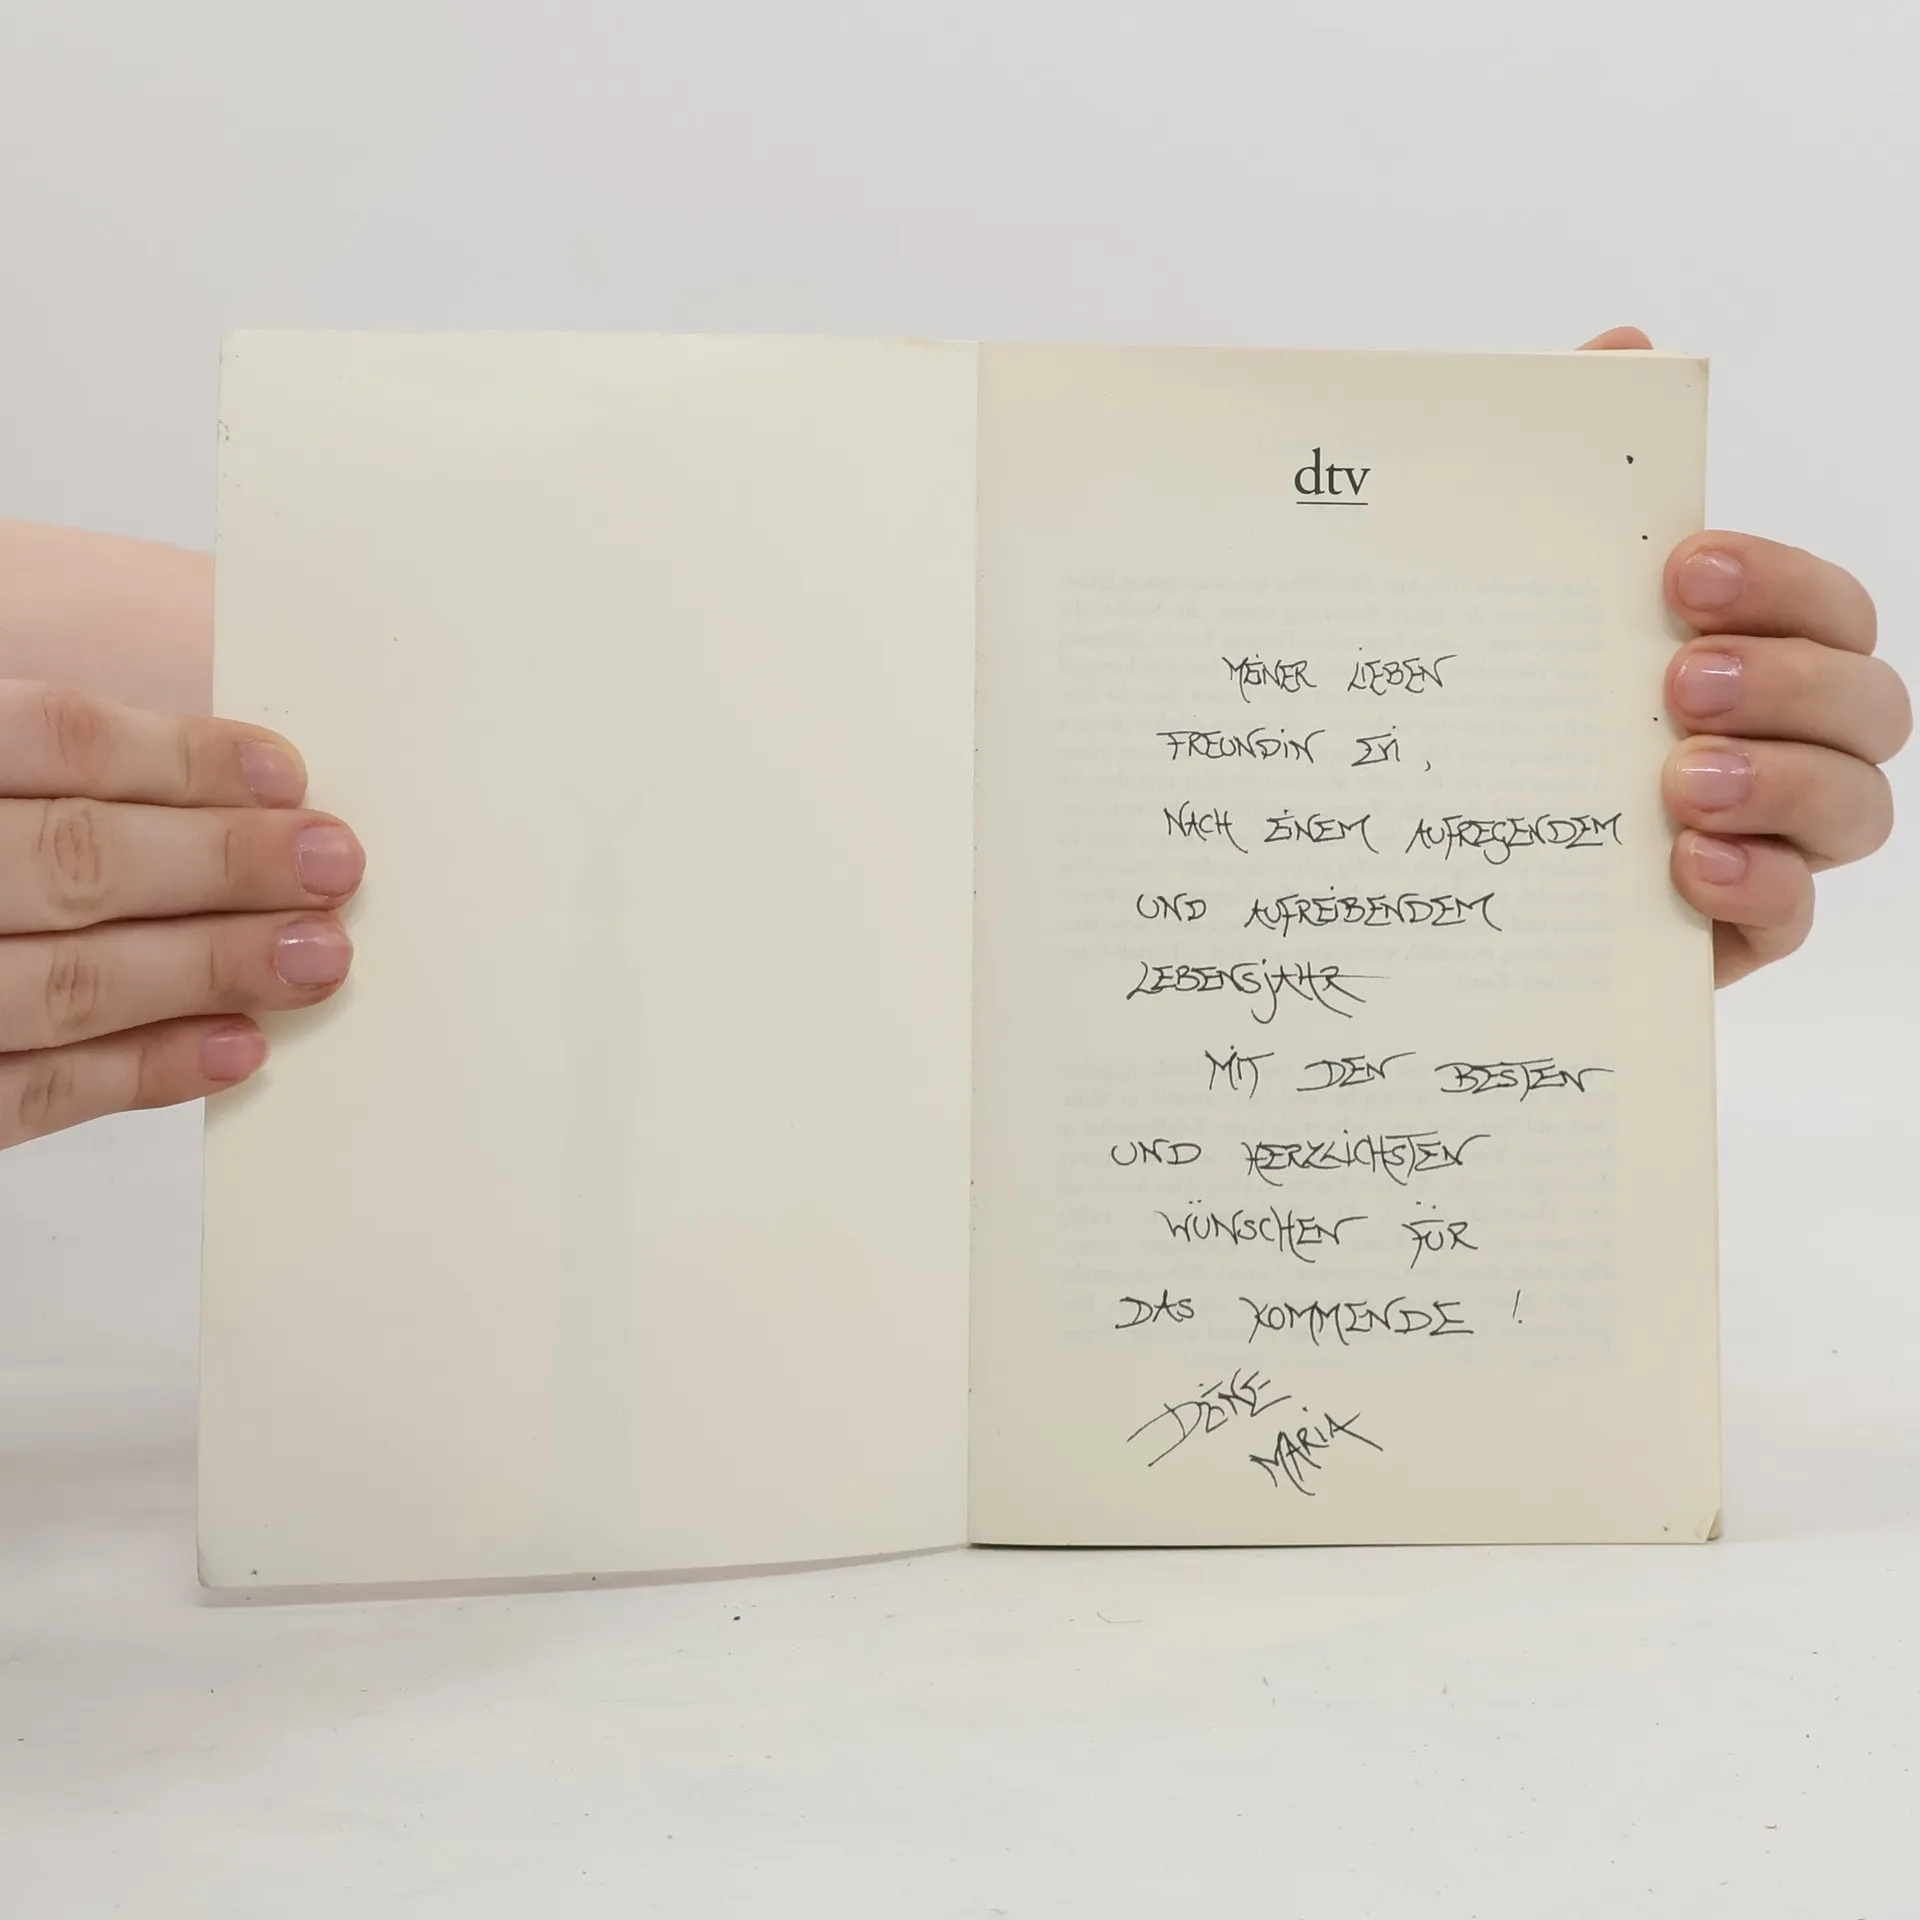 dtv
MEINER LIEBEN
FREUNDIN Eri,
NACH EINEM AUFREGENDEM
UND AUFREIBENDEM
LEBENSJAHR
MIT DEN BESTEN
UND HERZLICHSTEN
WÜNSCHEN FÜR
DAS KOMMENDE !
DEINE
MARIA